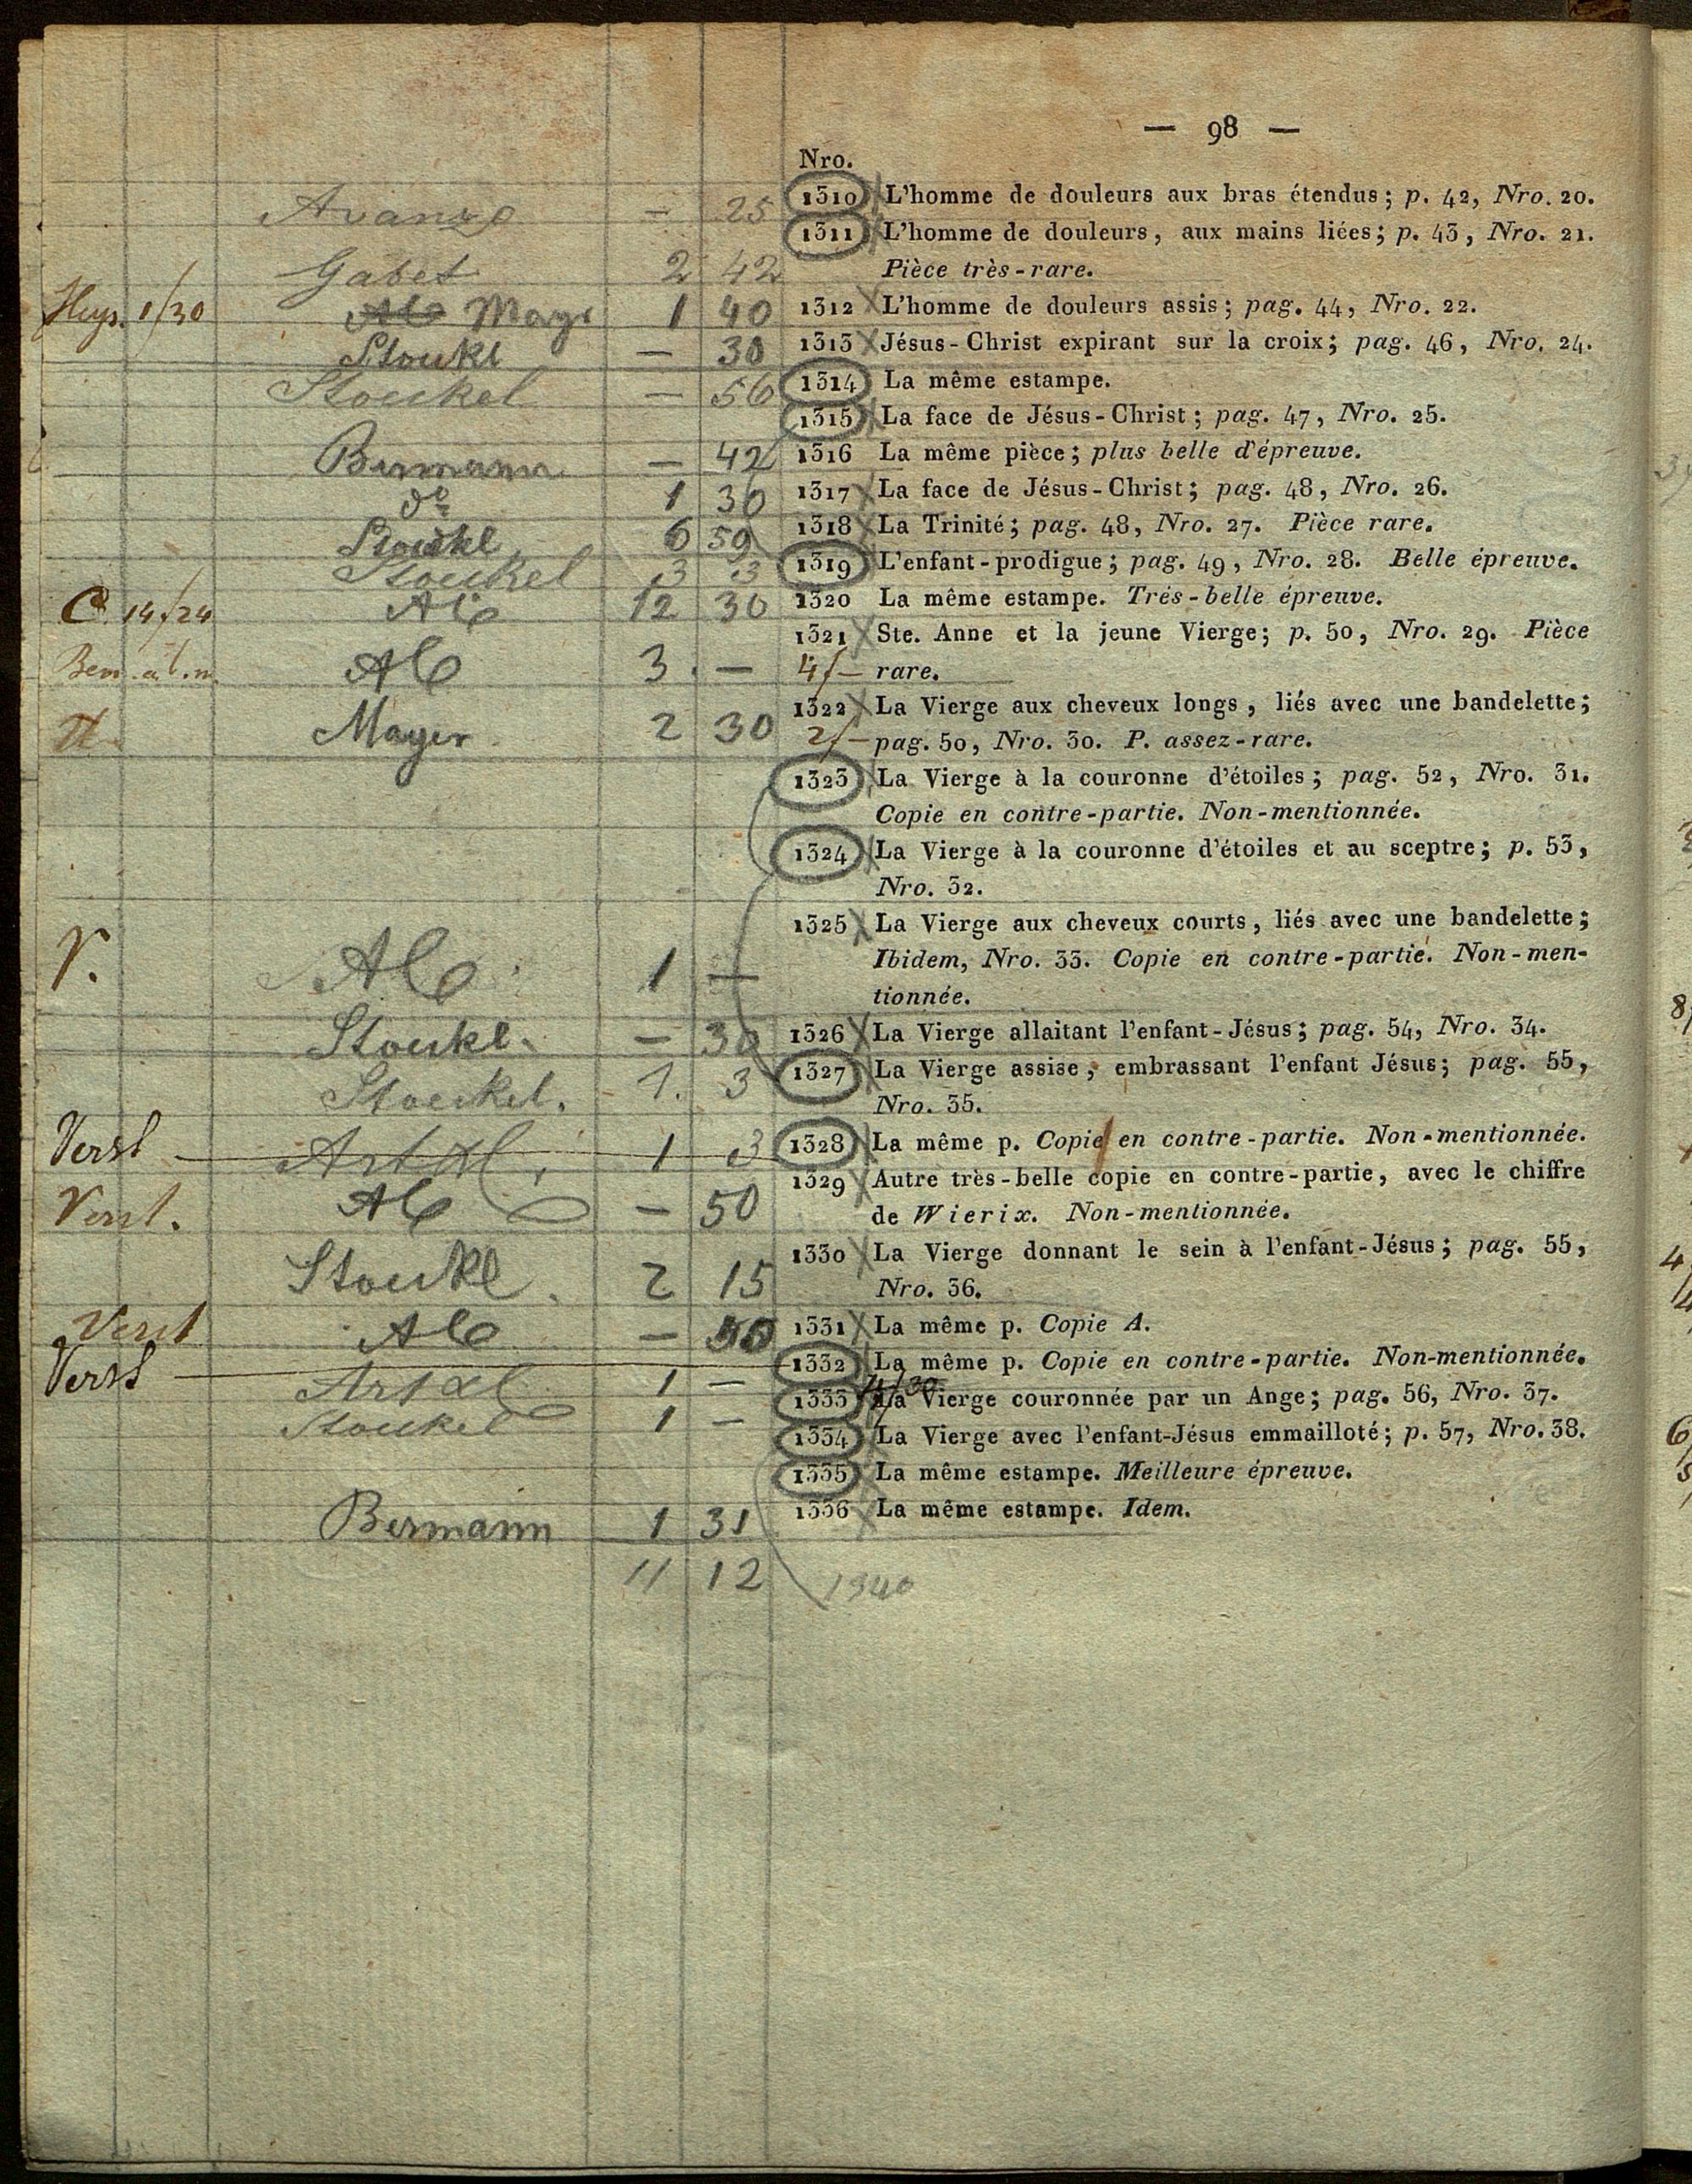 — 98 —
Nro.
Avanzo — 25 1310 L'homme de douleurs aux bras étendus; p. 42, Nro. 20.
1311 L'homme de douleurs, aux mains liées; p. 43, Nro. 21.
Gabet 2 42 Pièce très-rare.
1/30 1 40 1312 L'homme de douleurs assis; pag. 44, Nro. 22.
Stoukl — 30 1313 Jésus-Christ expirant sur la croix; pag. 46, Nro. 24.
Stoeckel — 56 1314 La même estampe.
1315 La face de Jésus-Christ; pag. 47, Nro. 25.
Bermann — 42 1316 La même pièce; plus belle d'épreuve.
do 1 30 1317 La face de Jésus-Christ; pag. 48, Nro. 26.
Stoukl 6 59 1318 La Trinité; pag. 48, Nro. 27. Pièce rare.
Stoeckel 3 3 1319 L'enfant-prodigue; pag. 49, Nro. 28. Belle épreuve.
C. 14/24 Alb 12 30 1320 La même estampe. Très-belle épreuve.
1321 Ste. Anne et la jeune Vierge; p. 50, Nro. 29. Pièce
Alb 3 . — 4/— rare.
1322 La Vierge aux cheveux longs, liés avec une bandelette;
Mayer 2 30 2/— pag. 50, Nro. 30. P. assez-rare.
1323 La Vierge à la couronne d'étoiles; pag. 52, Nro. 31.
Copie en contre-partie. Non-mentionnée.
1324 La Vierge à la couronne d'étoiles et au sceptre; p. 53,
Nro. 32.
1325 La Vierge aux cheveux courts, liés avec une bandelette;
V. Alb 1 — Ibidem, Nro. 33. Copie en contre-partie. Non-men-
tionnée.
Stoukl. — 30 1326 La Vierge allaitant l'enfant-Jésus; pag. 54, Nro. 34.
1327 La Vierge assise, embrassant l'enfant Jésus; pag. 55,
Stoeckel. 1. 3 Nro. 35.
Verst — Artxl. 1 3 1328 La même p. Copie en contre-partie. Non-mentionnée.
1329 Autre très-belle copie en contre-partie, avec le chiffre
Verst. Alb — 50 de Wierix. Non-mentionnée.
1330 La Vierge donnant le sein à l'enfant-Jésus; pag. 55,
Stoukl. 2 15 Nro. 36.
Verst Alb — 50 1331 La même p. Copie A.
Verst — 1332 La même p. Copie en contre-partie. Non-mentionnée.
Artxl 1 — 1333 La Vierge couronnée par un Ange; pag. 56, Nro. 37.
Stoeckel 1 — 1334 La Vierge avec l'enfant-Jésus emmailloté; p. 57, Nro. 38.
1335 La même estampe. Meilleure épreuve.
Bermann 1 31 1336 La même estampe. Idem.
11 12 1340